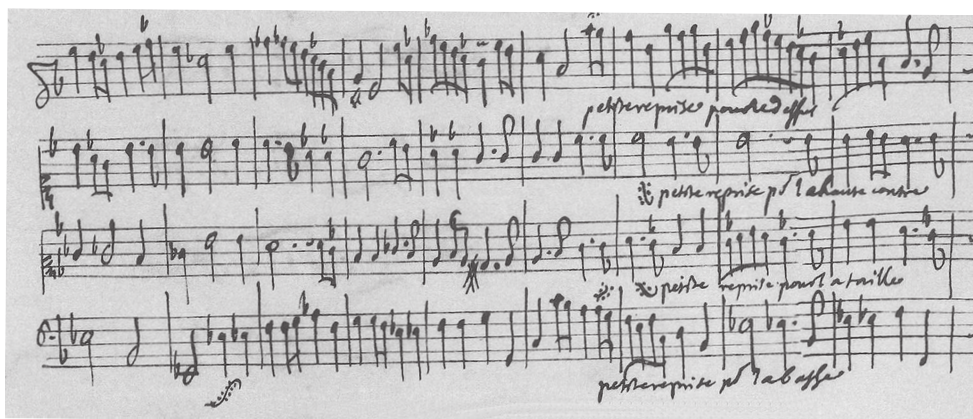 petitte reprise pour le dessus
petite reprise pr la haute contre
petitte reprise pour la taille
petitte reprise pr la basse